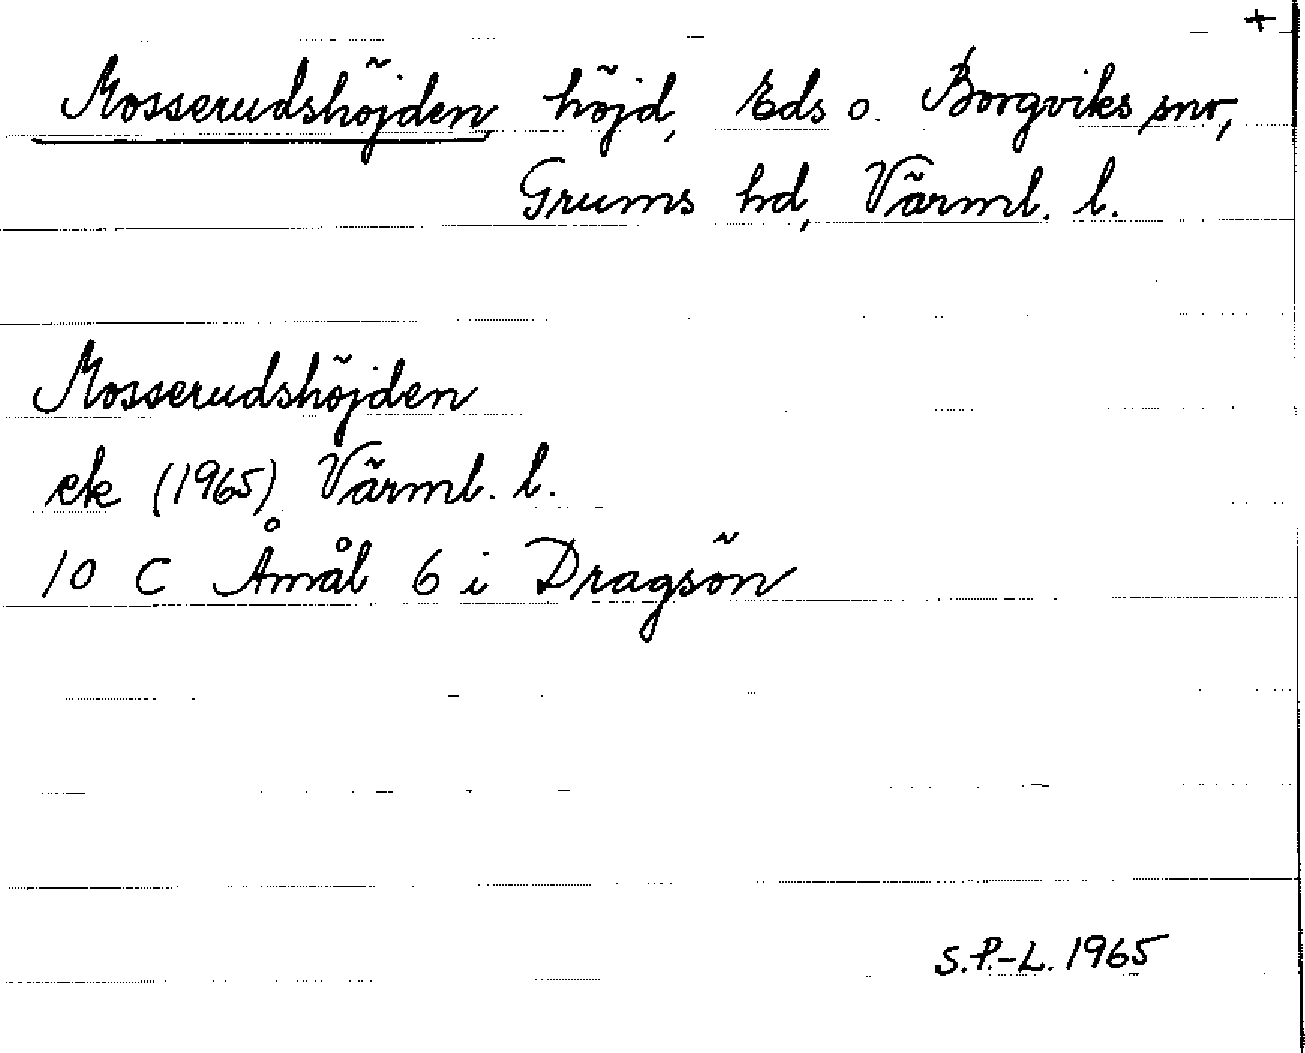 +
Mosserudshöjden höjd, Eds o. Borgviks snr,
Grums hd, Värml. l.
Mosserudshöjden
ek (1965) Värml. l.
10 C Åmål 6 i Dragsön
S.P.-L. 1965